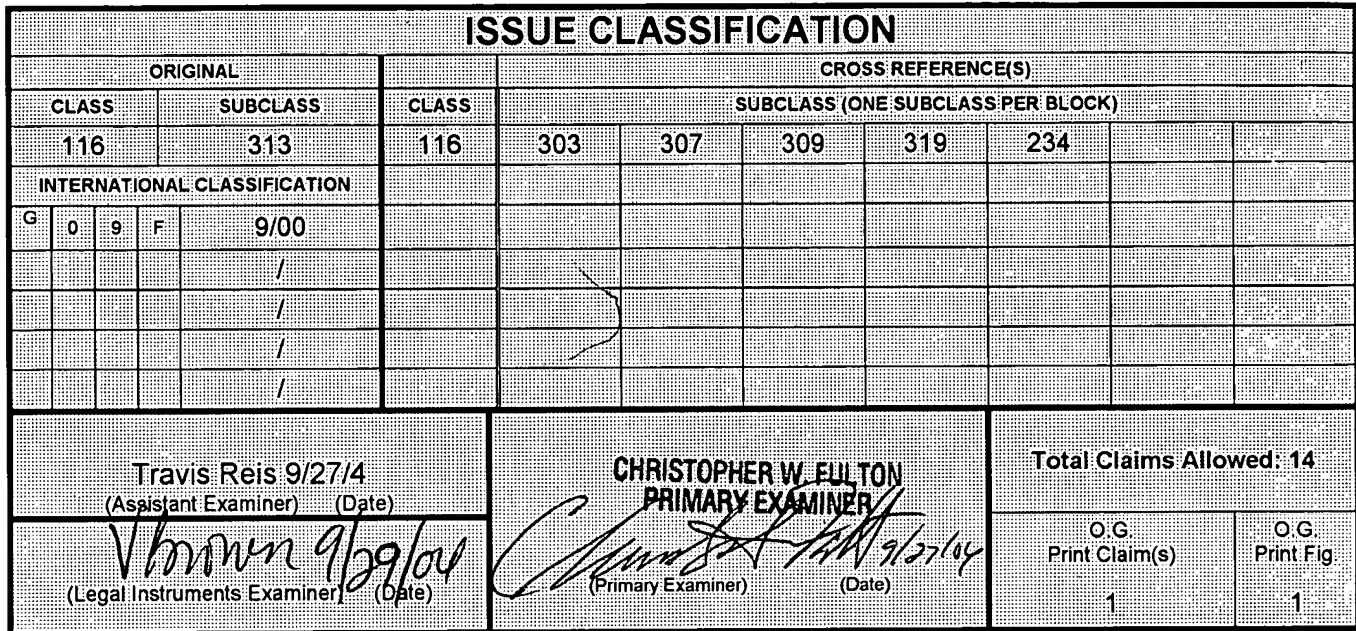 ISSUE CLASSIFICATION
ORIGINAL CROSS REFERENCE(S)
CLASS SUBCLASS CLASS SUBCLASS (ONE SUBCLASS PER BLOCK)
116 313 116 303 307 309 319 234
INTERNATIONAL CLASSIFICATION
G 0 9 F 9/00
/
/
/
/
Travis Reis 9/27/4
(Assistant Examiner) (Date)
VBrown 9/29/04
(Legal Instruments Examiner) (Date)
CHRISTOPHER W. FULTON
PRIMARY EXAMINER
9/27/04
(Primary Examiner) (Date)
Total Claims Allowed: 14
O.G.
Print Claim(s)
1
O.G.
Print Fig.
1